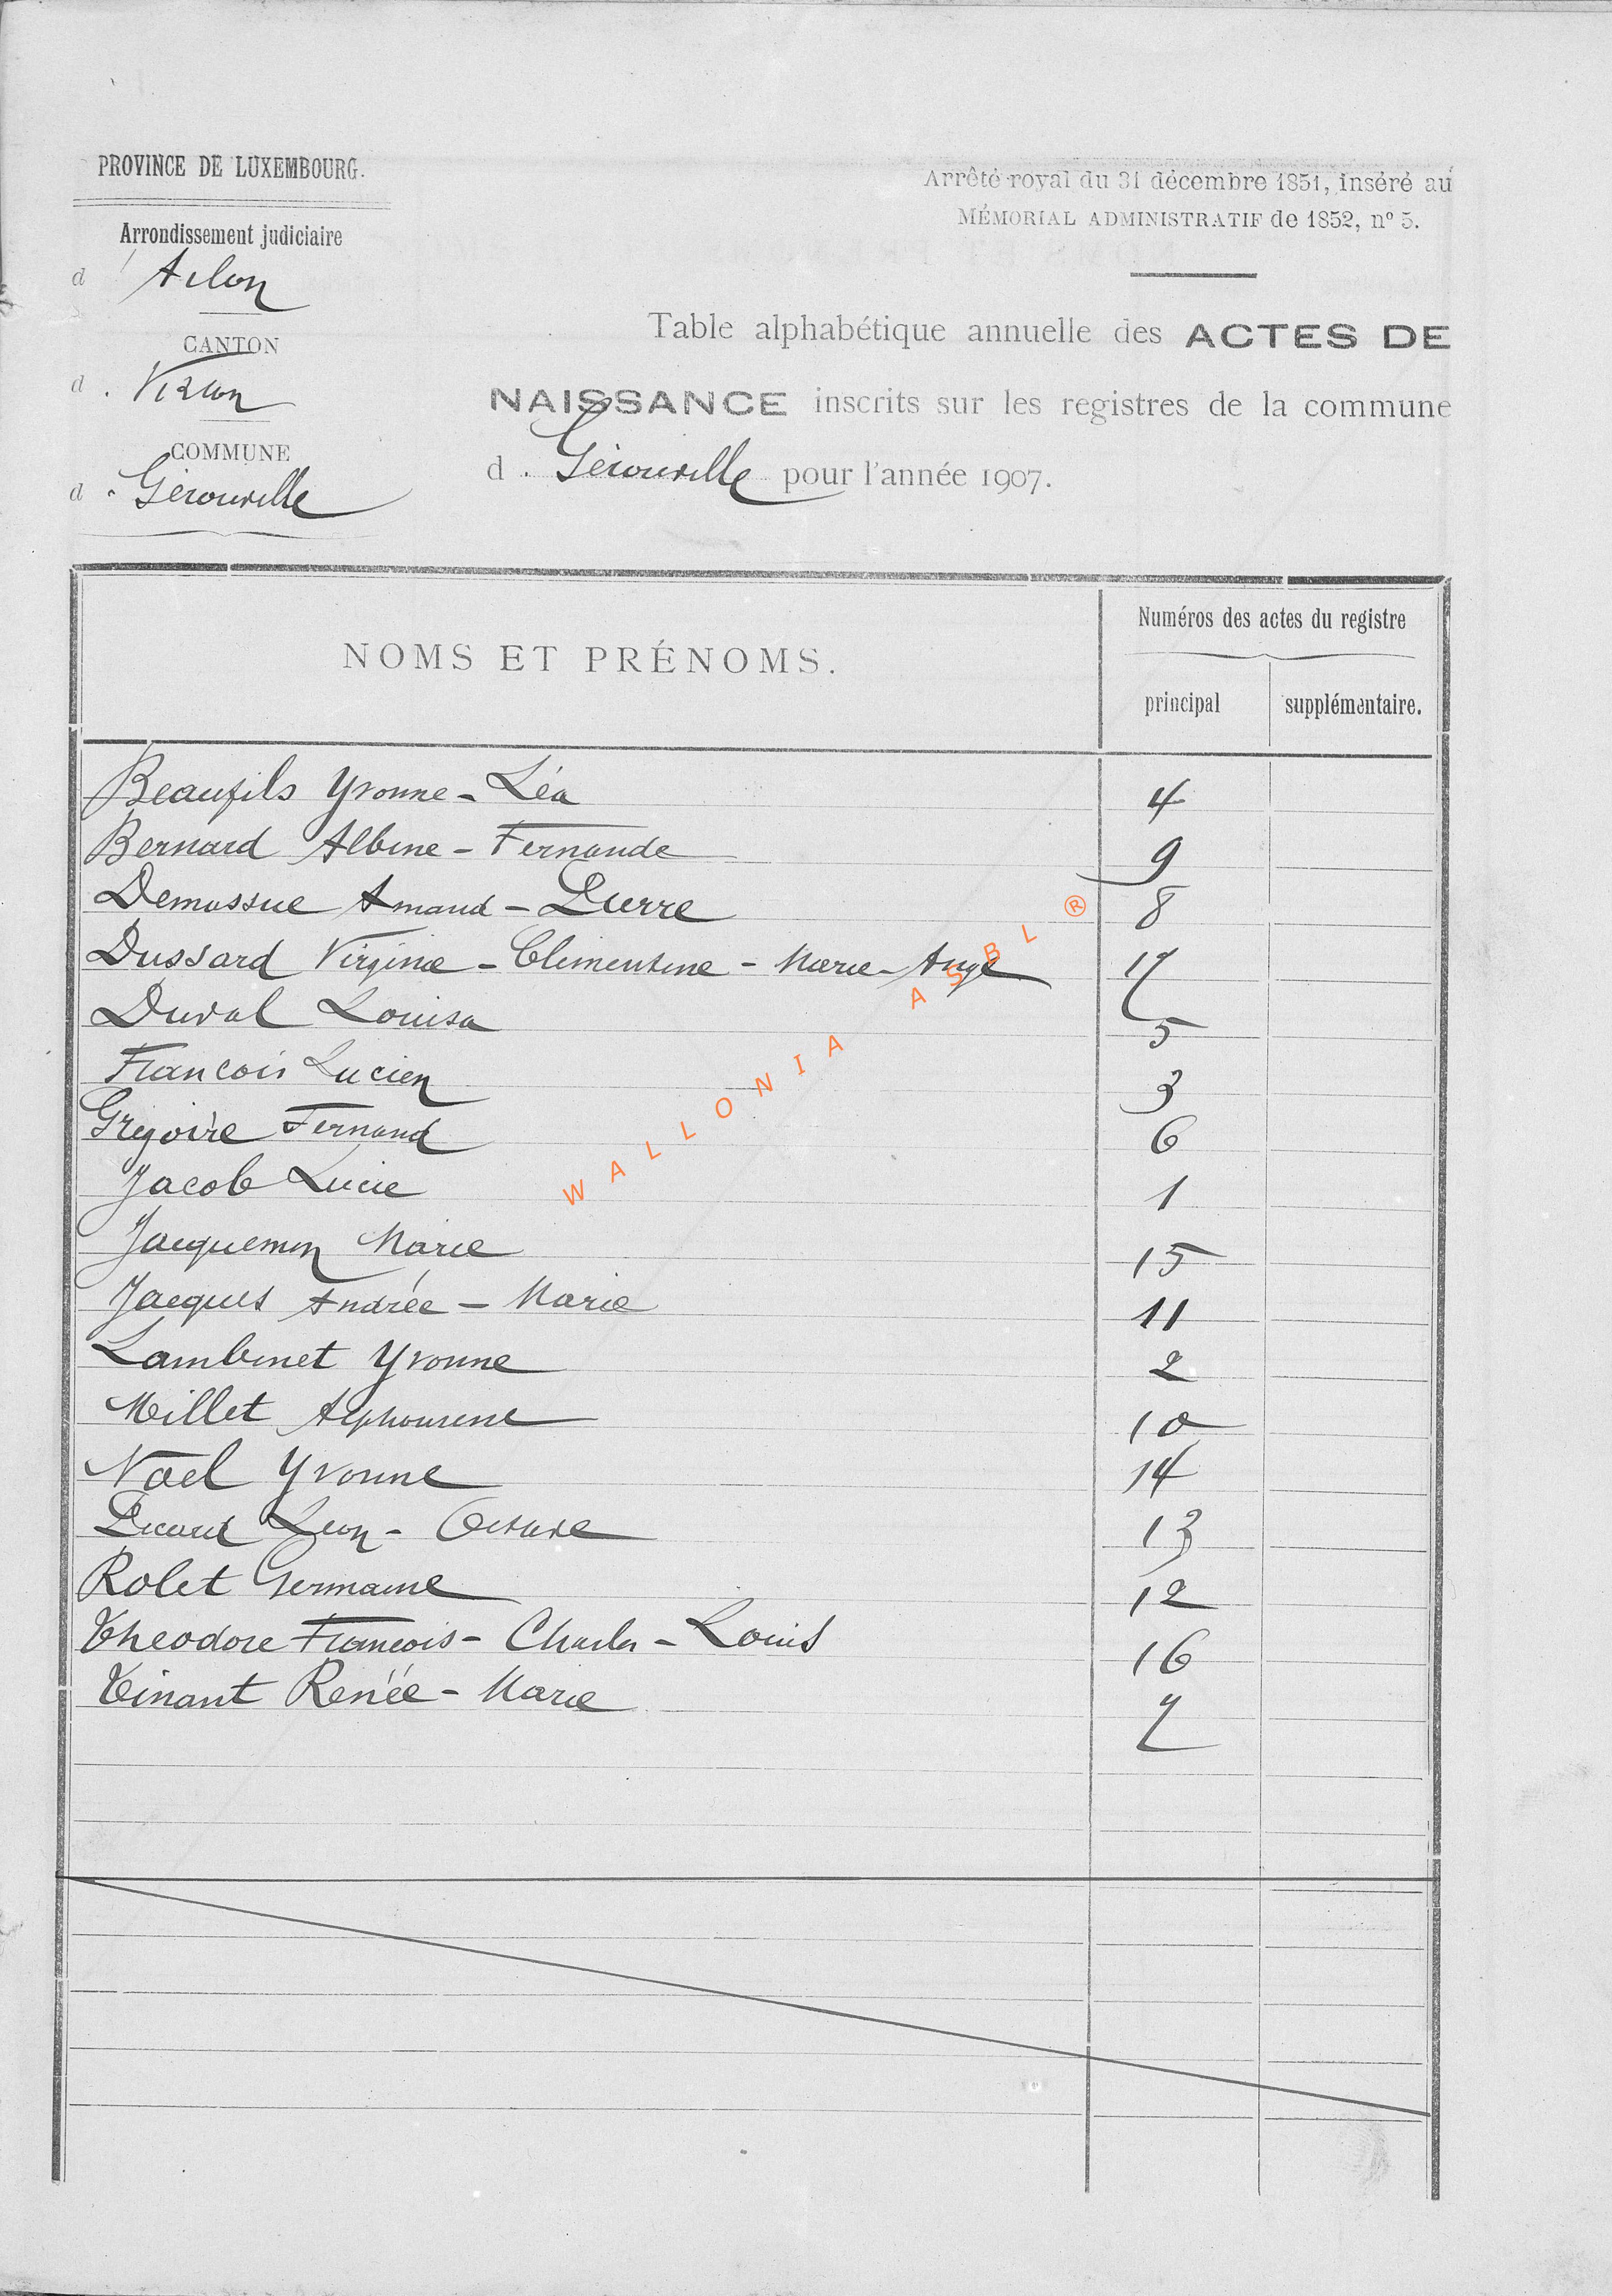 PROVINCE DE LUXEMBOURG.
Arrondissement judiciaire
d'Arlon
CANTON
d. Virton
COMMUNE
d. Gérouville
Arrêté royal du 31 décembre 1851, inséré au
MÉMORIAL ADMINISTRATIF de 1852, nº 5.
Table alphabétique annuelle des ACTES DE
NAISSANCE inscrits sur les registres de la commune
d. Gérouville pour l'année 1907.
NOMS ET PRÉNOMS.
Numéros des actes du registre
principal supplémentaire.
Beaufils Yvonne-Léa 4
Bernard Albine-Fernande 9
Demassue Amand-Pierre 8
Dussard Virginie-Clémentine-Marie-Ange 17
Duval Louisa 5
François Lucien 3
Grégoire Fernand 6
Jacob Lucie 1
Jacquemin Marie 15
Jacques Andrée-Marie 11
Lambinet Yvonne 2
Millet Alphonsine 10
Noël Yvonne 14
Picard Léon-Octave 13
Rolet Germaine 12
Théodore François-Charles-Louis 16
Tinant Renée-Marie 7
WALLONIA ASBL ®